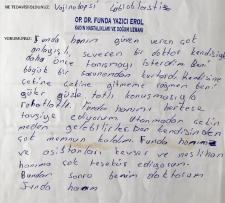 NE TEDAVİSİ OLDUNUZ: Vajinoloji Labioplasti
OP. DR. FUNDA YAZICI EROL
KADIN HASTALIKLARI VE DOĞUM UZMANI
YORUMUNUZ:
Funda hanım güven veren çok
anlayışlı, sevecen bir doktor kendisiyle
daha önce tanışmayı isterdim Beni
büyük bir sorunumdan kurtardı kendisine
çetine çetine gitmeme rağmen beni
güler yüzle tatlı konuşmasıyla
rahatlattı. Funda hanımı herkese
tavsiye ediyorum. Utanmadan çekin
meden gelebilirler. Ben kendisinden
çok memnun kaldım. Funda hanıma
ve asistanları Kevser ve neslihan
hanıma çok teşekkür ediyorum.
Bundan sonra benim doktorum
Funda hanım